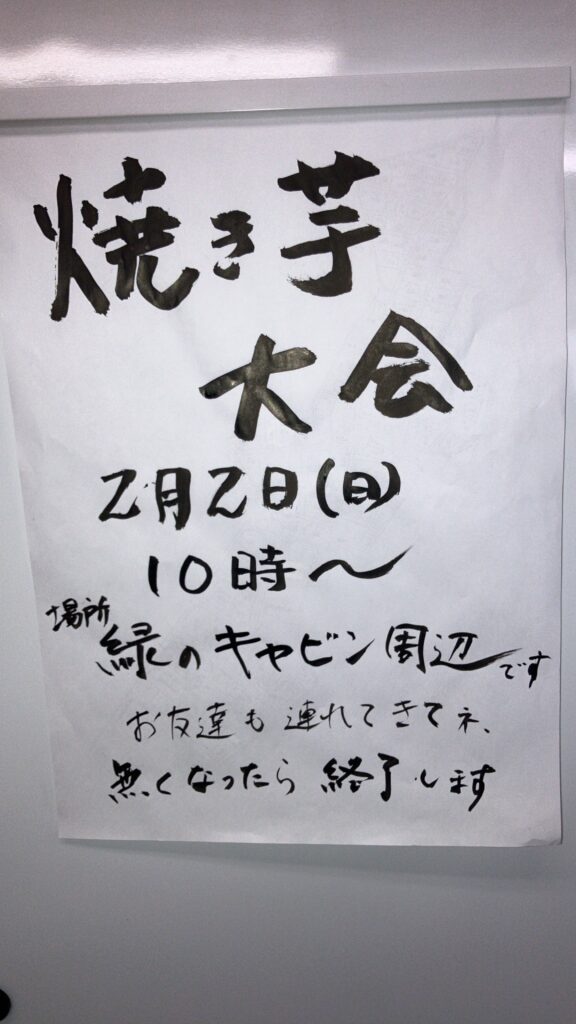 焼き芋
大会
2月2日(日)
10時〜
場所
緑のキャビン周辺です
お友達も連れてきてネ、
無くなったら終了します